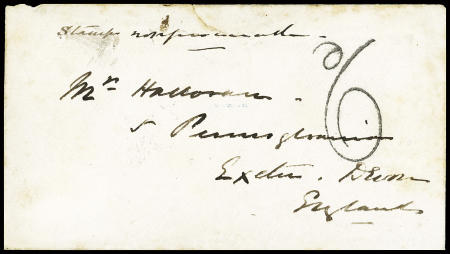 Stamps not procurable.
6
Mrs Halloran.
5 Pennsylvania
Exeter. Devon
England